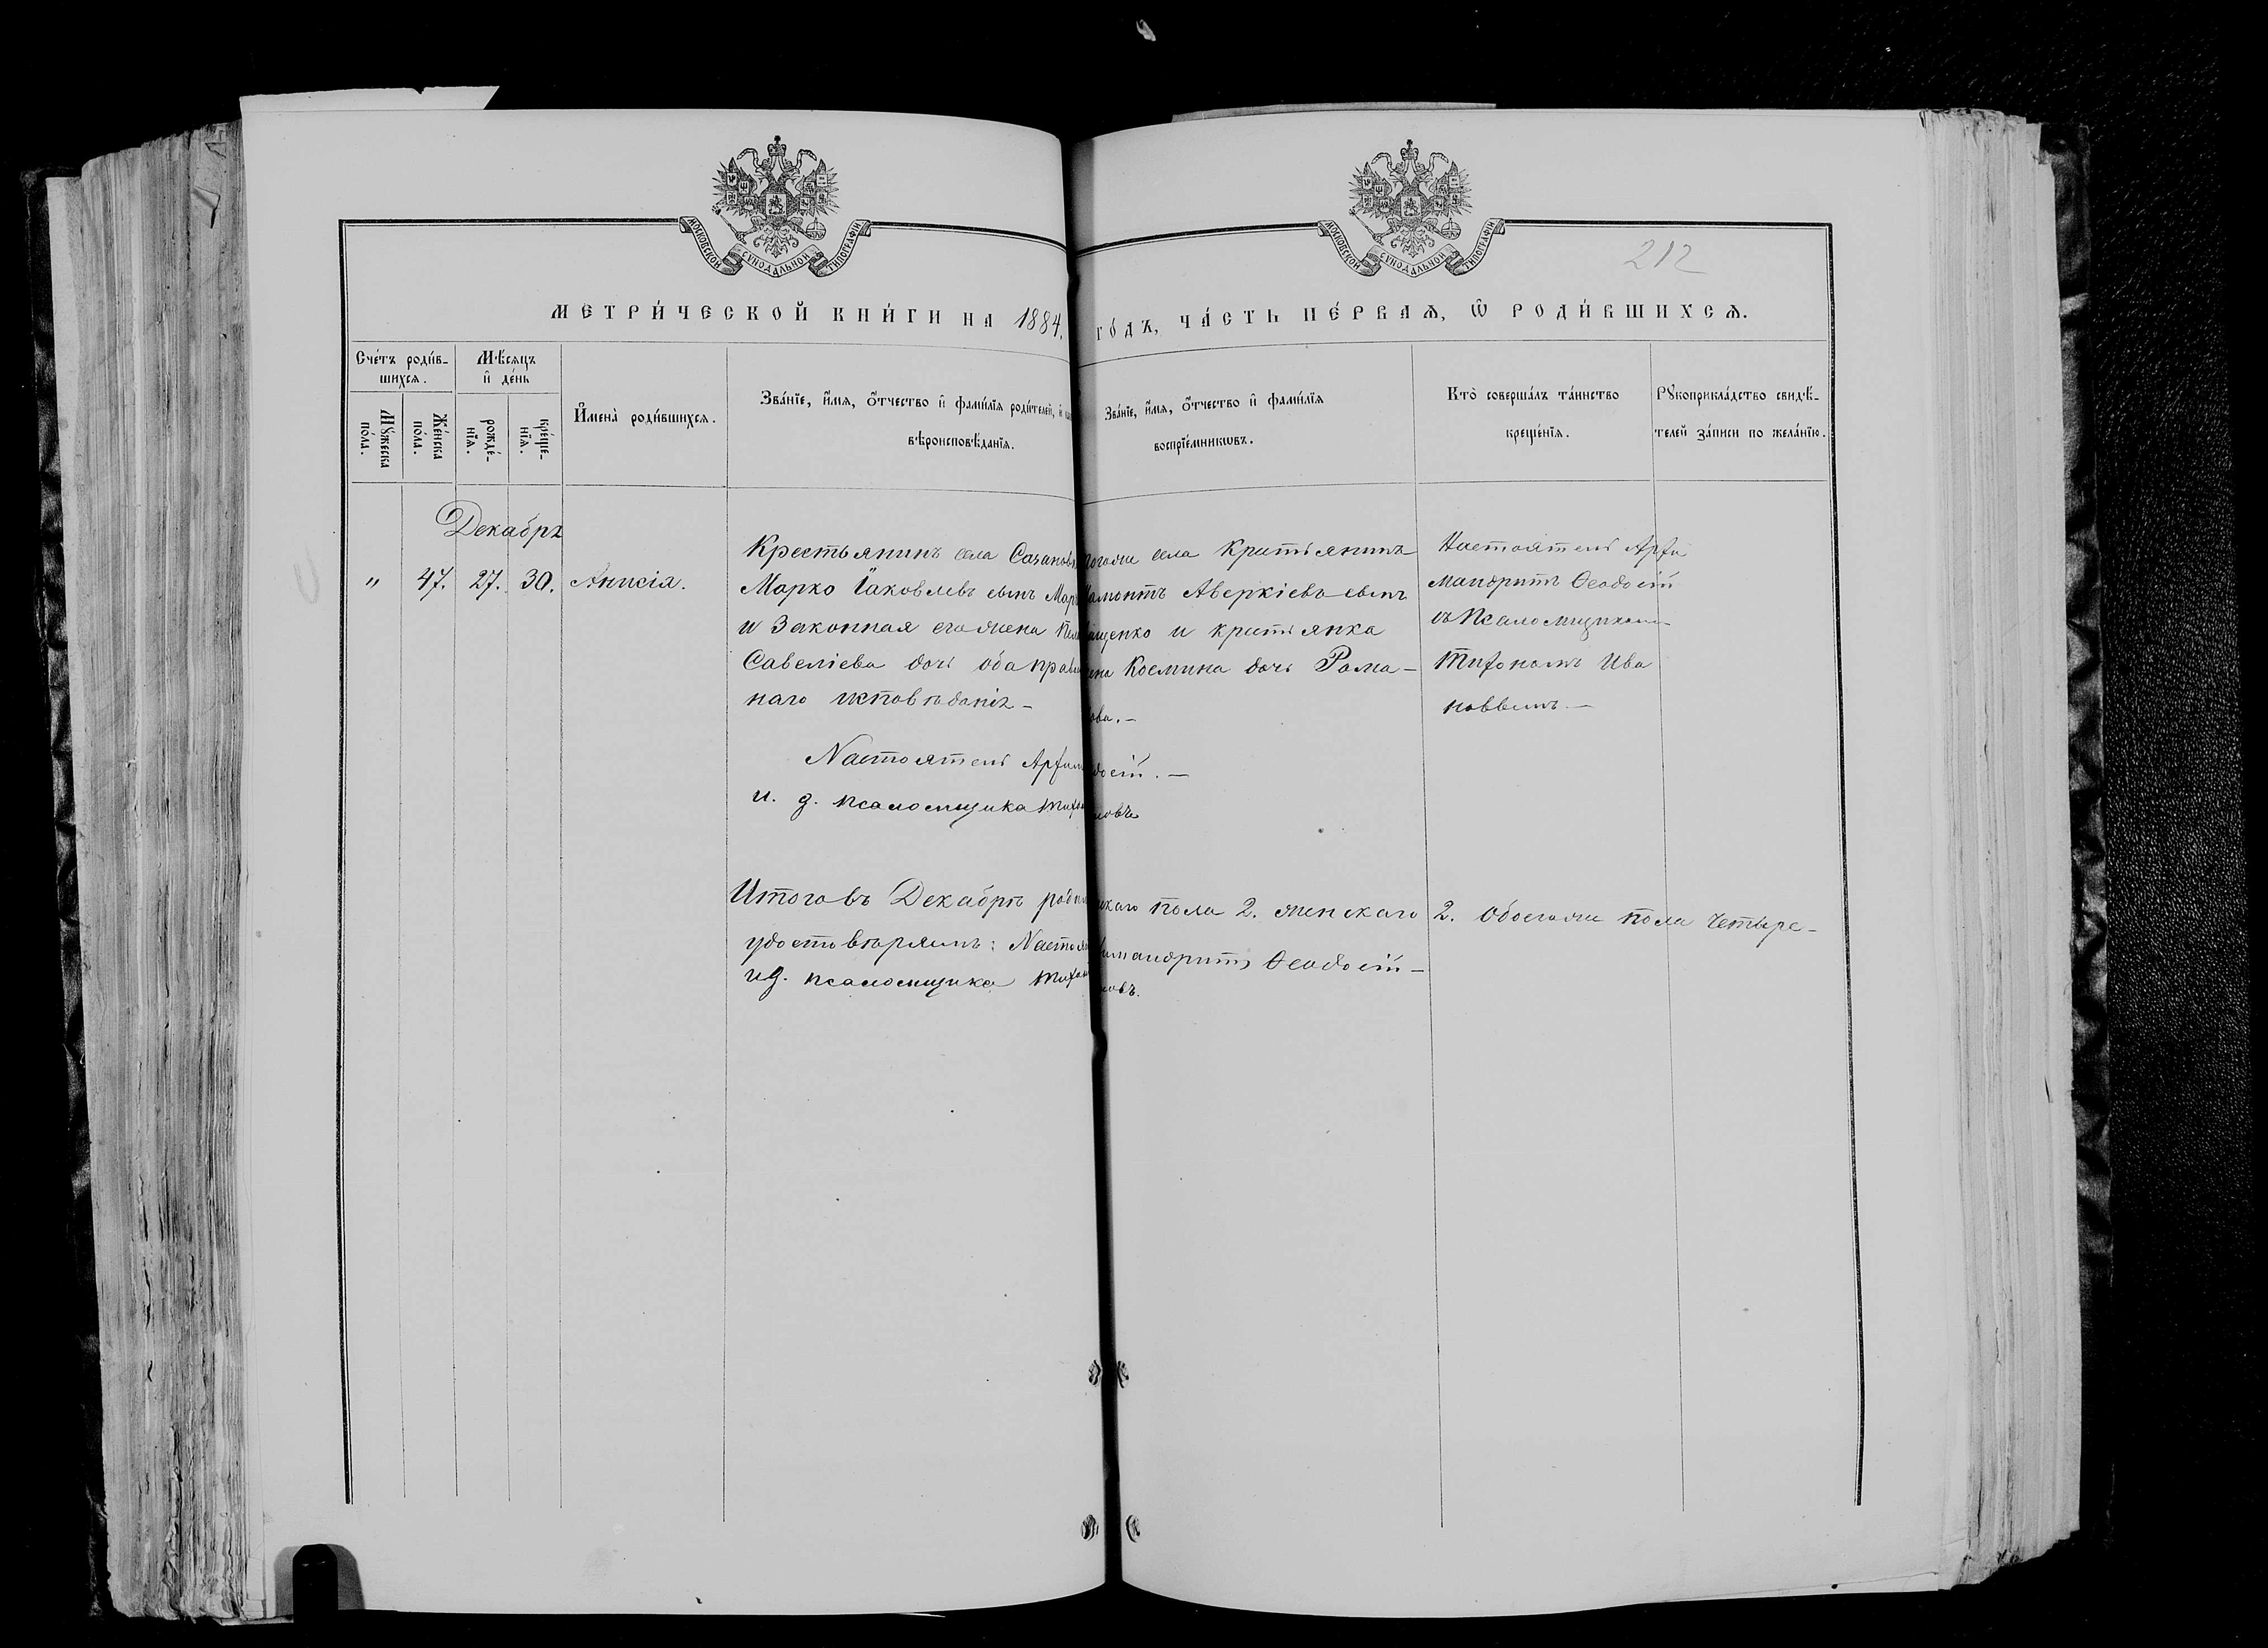 МОСКОВСКОЙ СѴНОДАЛЬНОЙ ТИПОГРАФІИ
МОСКОВСКОЙ СѴНОДАЛЬНОЙ ТИПОГРАФІИ
212
МЕТРИ́ЧЕСКОЙ КНИ́ГИ НА 1884. ГО́ДЪ, ЧА́СТЬ ПЕ́РВАѦ, Ѡ҆ РОДИ́ВШИХСѦ.
Сче́тъ роди́в-
шихсѧ.
Мꙋ́жеска
по́ла.
Же́нска
по́ла.
Мѣ́сѧцъ
и҆ де́нь
рожде́-
нїѧ.
креще́-
нїѧ.
И҆мена̀ роди́вшихсѧ.
Зва́нїе, и҆́мѧ, ѻ҆́тчество и҆ фами́лїѧ роди́телей, и҆
вѣроисповѣ́данїѧ.
Зва́нїе, и҆́мѧ, ѻ҆́тчество и҆ фами́лїѧ
воспрїе́мникѡвъ.
Кто̀ соверша́лъ та́инство
креще́нїѧ.
Рꙋкоприкла́дство свидѣ́-
телей за́писи по жела́нїю.
Декабрь
" 47. 27. 30. Анисія.
Крестьянинъ села
Марко Іаковлевъ сынъ
и законная его жена
Савеліева дочь оба
наго исповѣданія -
села крестьянинъ
Аверкіевъ сынъ
и крестьянка
Космина дочь Рома-
ова. -
Настоятель Архи
мандритъ Ѳеодосій
съ Псаломщикомъ
Тихономъ Ива
новымъ. -
Настоятель
и. д. псаломщика
досій. -
новъ
Итого въ Декабрѣ пола 2. женскаго 2. обоего же пола четыре -
удостовѣряемъ: Ѳеодосій -
и д. псаломщика
новъ.